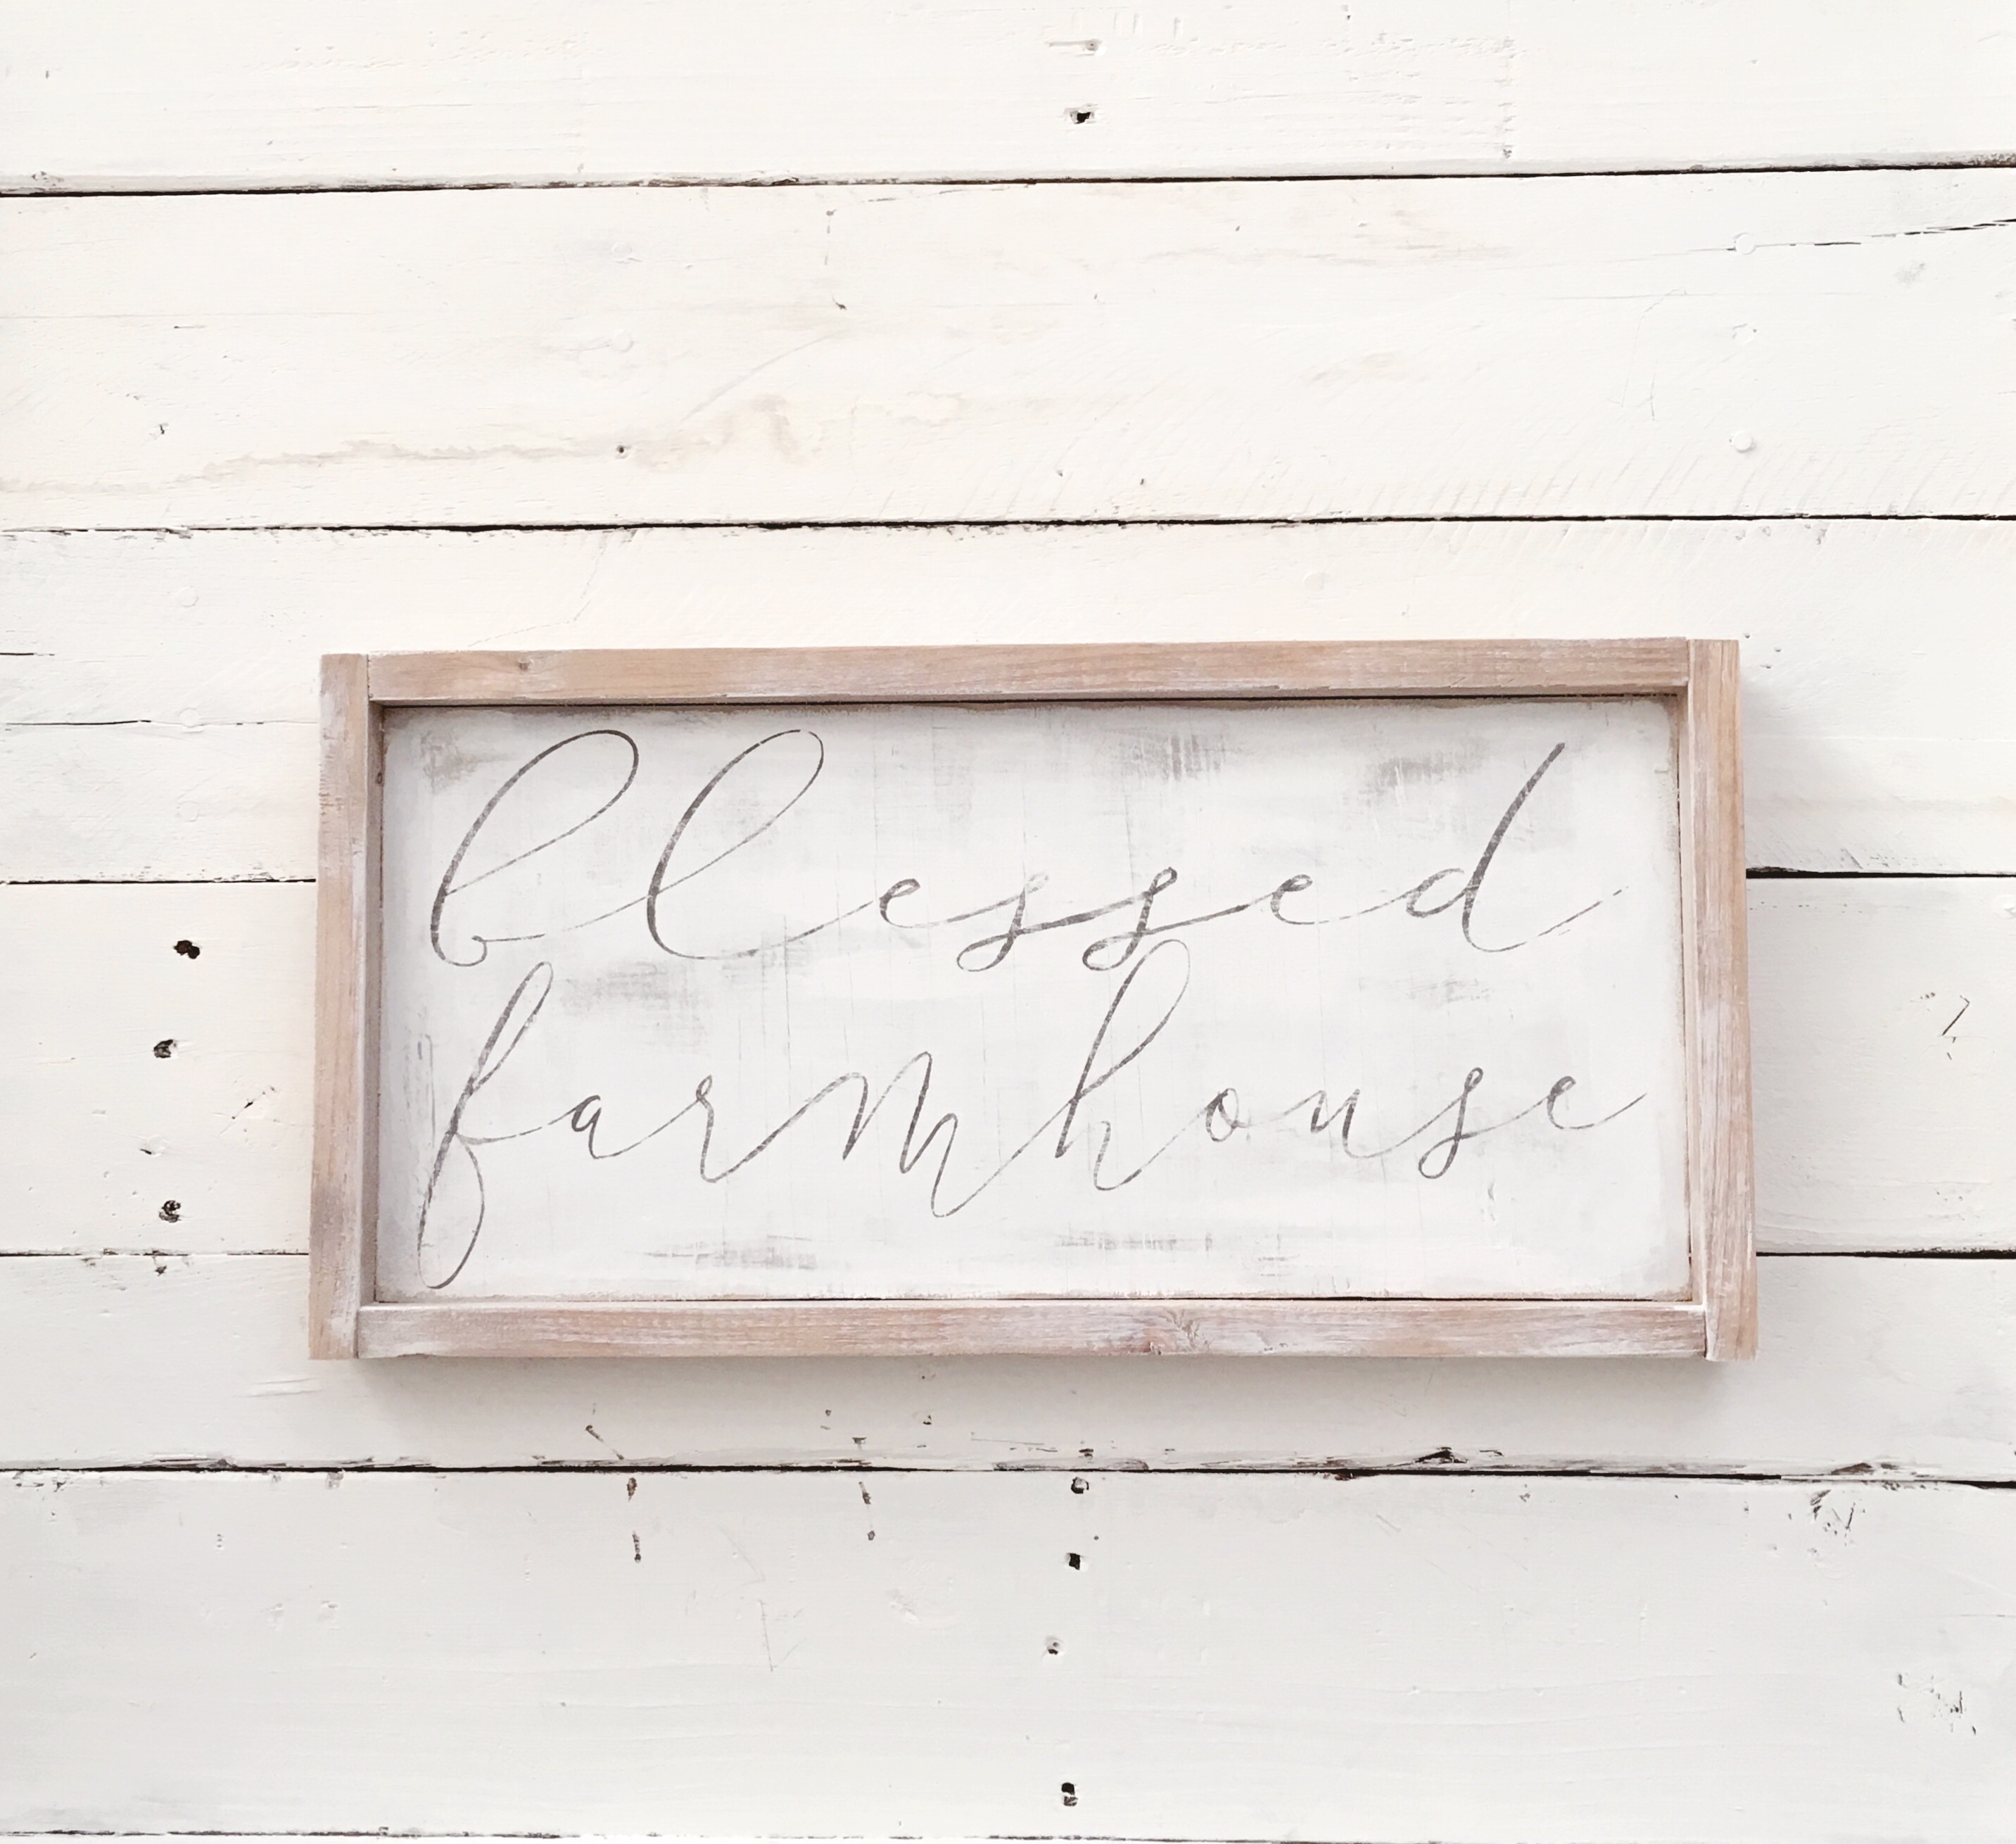 blessed
farmhouse